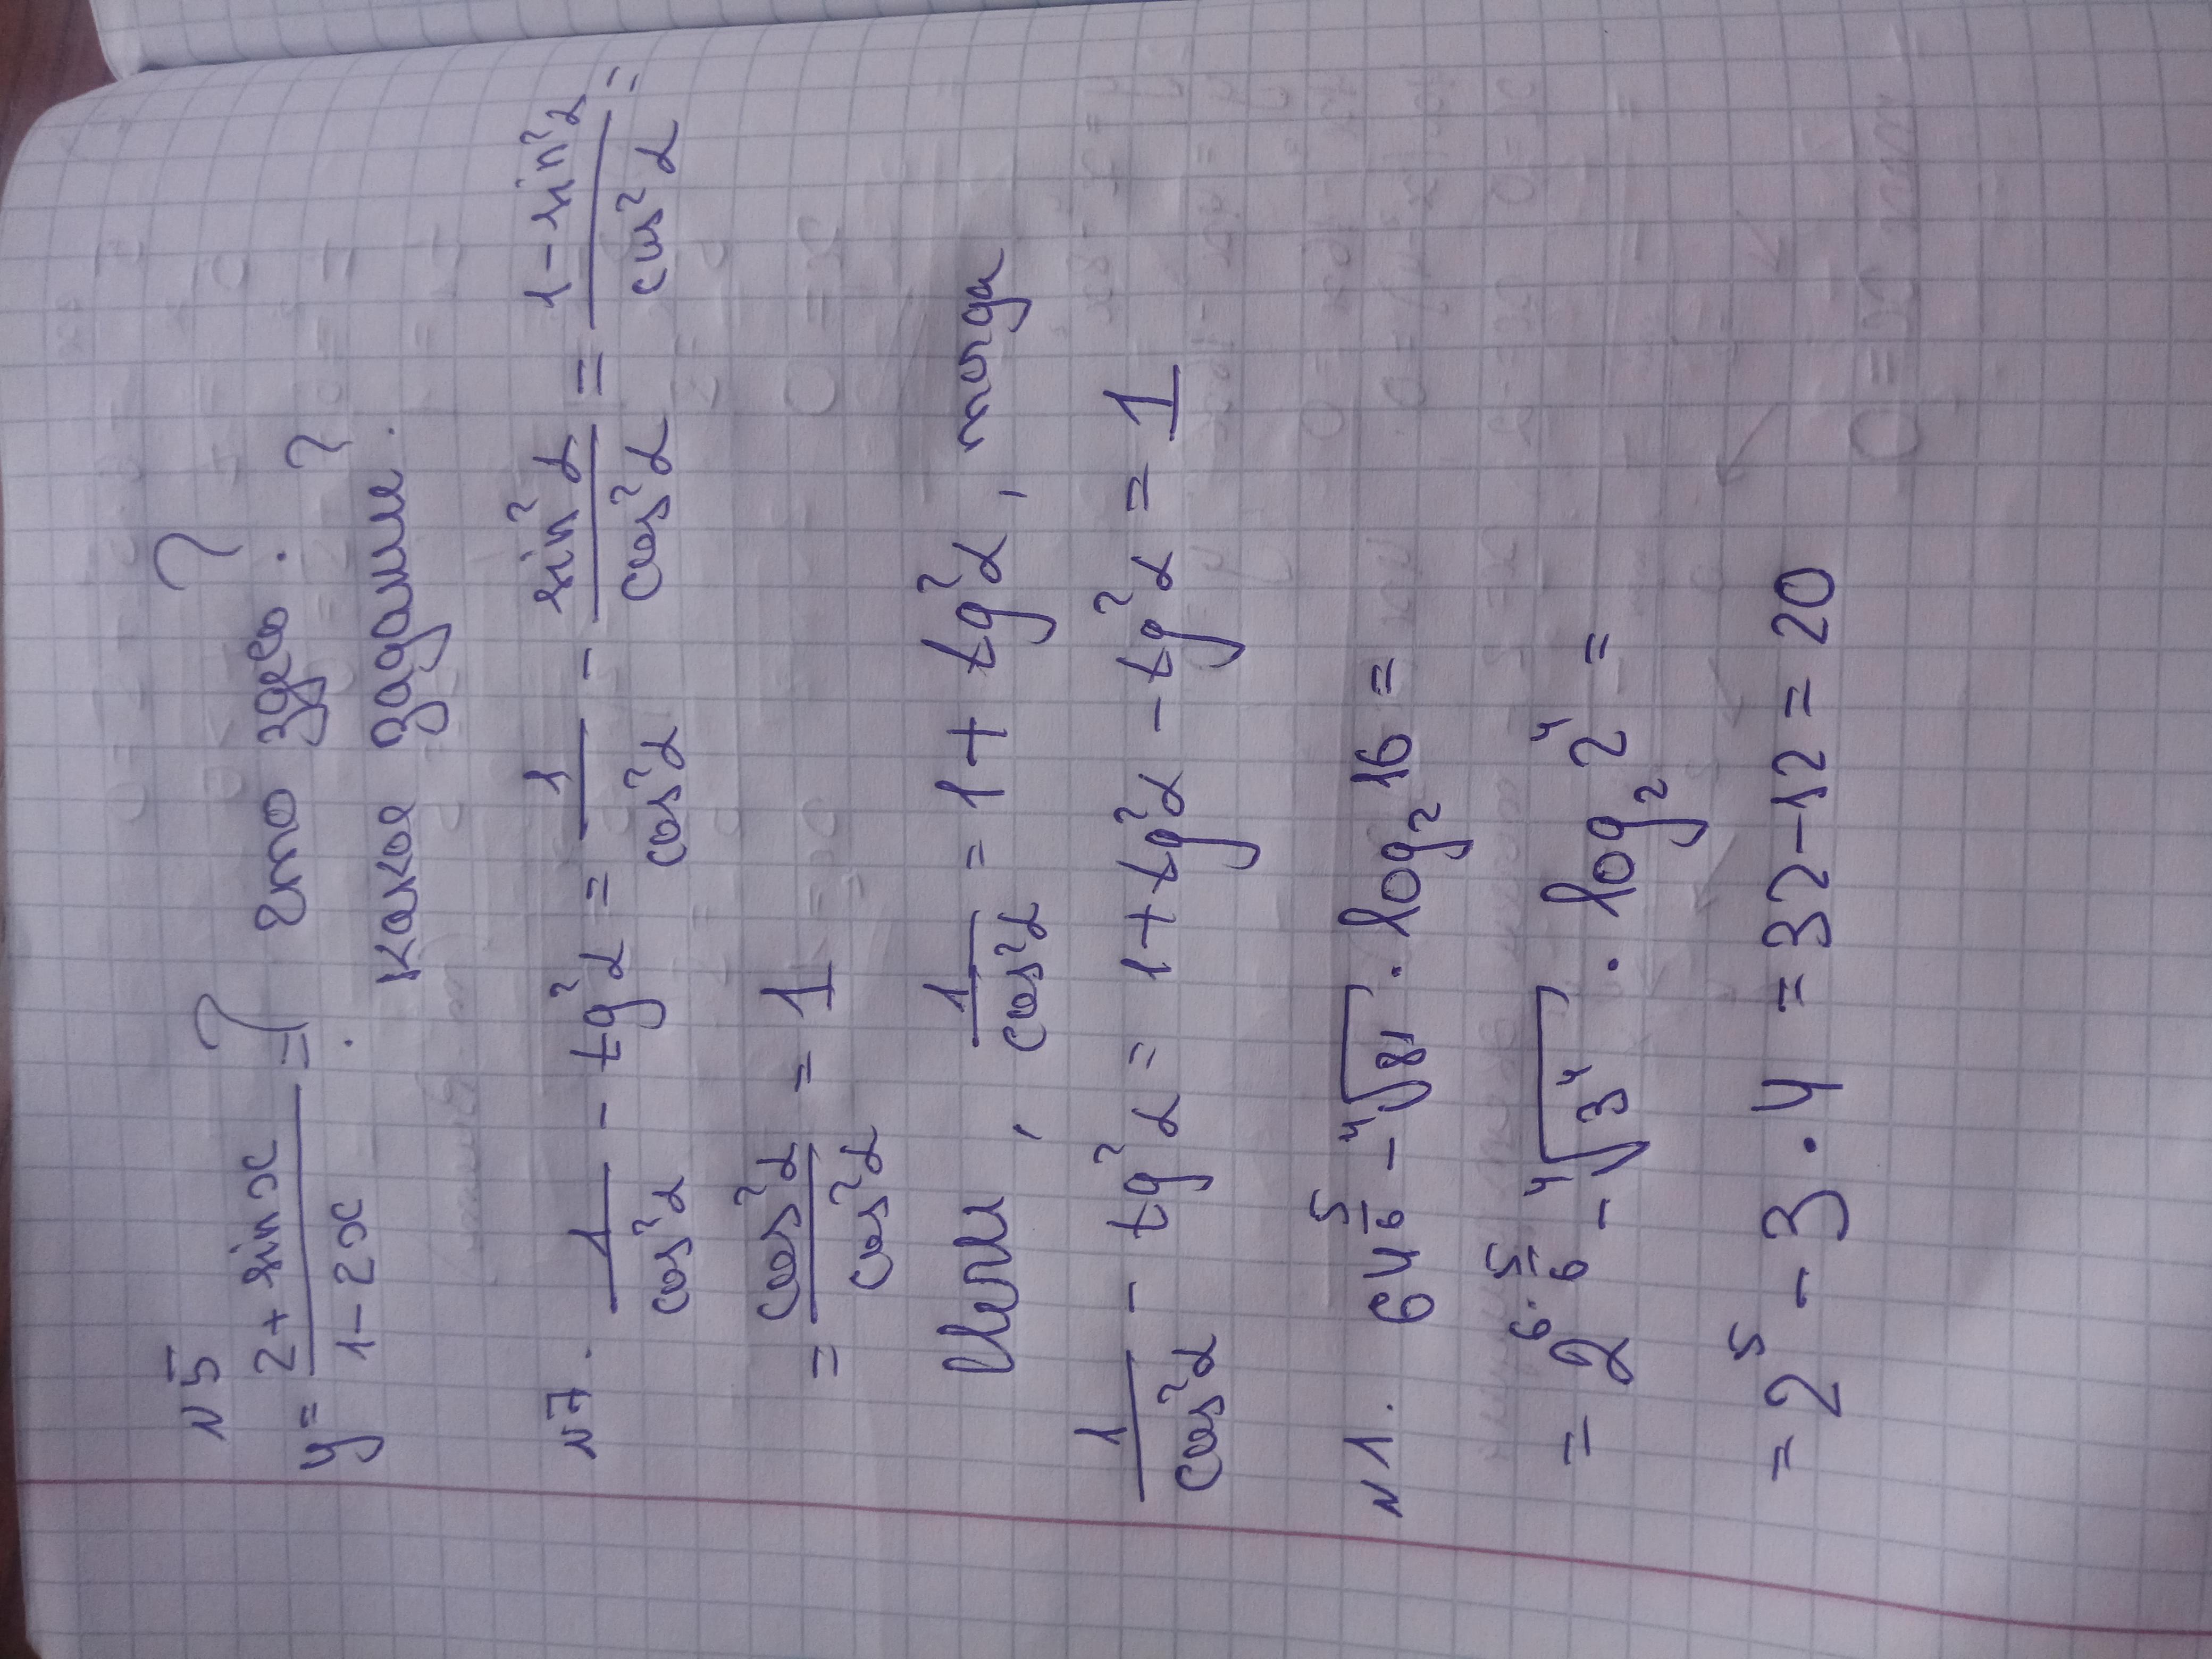 N 5
y = (2 + sin x)/(1 - 2x) = ? что здесь ?
какое задание ?
N 7. 1/cos²α - tg²α = 1/cos²α - sin²α/cos²α = (1 - sin²α)/cos²α =
= cos²α/cos²α = 1
Или, 1/cos²α = 1 + tg²α, тогда
1/cos²α - tg²α = 1 + tg²α - tg²α = 1
N 1. 64^(5/6) - ⁴√81 · log₂ 16 =
= 2^(6·5/6) - ⁴√3⁴ · log₂ 2⁴ =
= 2⁵ - 3 · 4 = 32 - 12 = 20